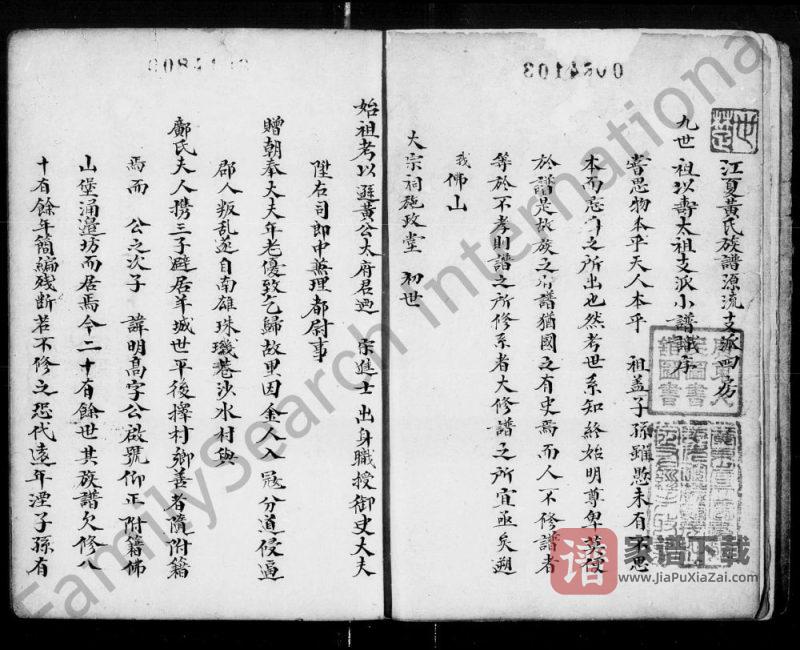 江夏黃氏族譜源流支派四房
九世祖以壽太祖支派小譜序
嘗思物本乎天人本乎 祖盖子孫雖愚未有不思
本而忘身之所出也然考世系知終始明尊卑莫便
於譜是故族之有譜猶國之有史焉而人不修譜者
等於不孝則譜之所修系者大修譜之所宜亟矣溯
我佛山
大宗祠施政堂 初世
始祖考以遜黃公太府君 宗進士出身職授御史大夫
陞右司郎中無理都尉事
贈朝奉大夫年老優致乞歸故里因金人入寇分道侵逼
郡人叛乱遂自南雄珠璣巷沙水村與
鄺氏夫人携三子避居羊城世平後擇村鄉善者隨附籍
焉而 公之次子 諱明高字公啟號仰正附籍佛
山堡涌邊坊而居焉今二十有餘世其族譜欠修八
十有餘年簡編残断若不修之恐代遠年湮子孫有
0054103
FamilySearch International
譜
家谱下载
www.JiaPuXiaZai.com